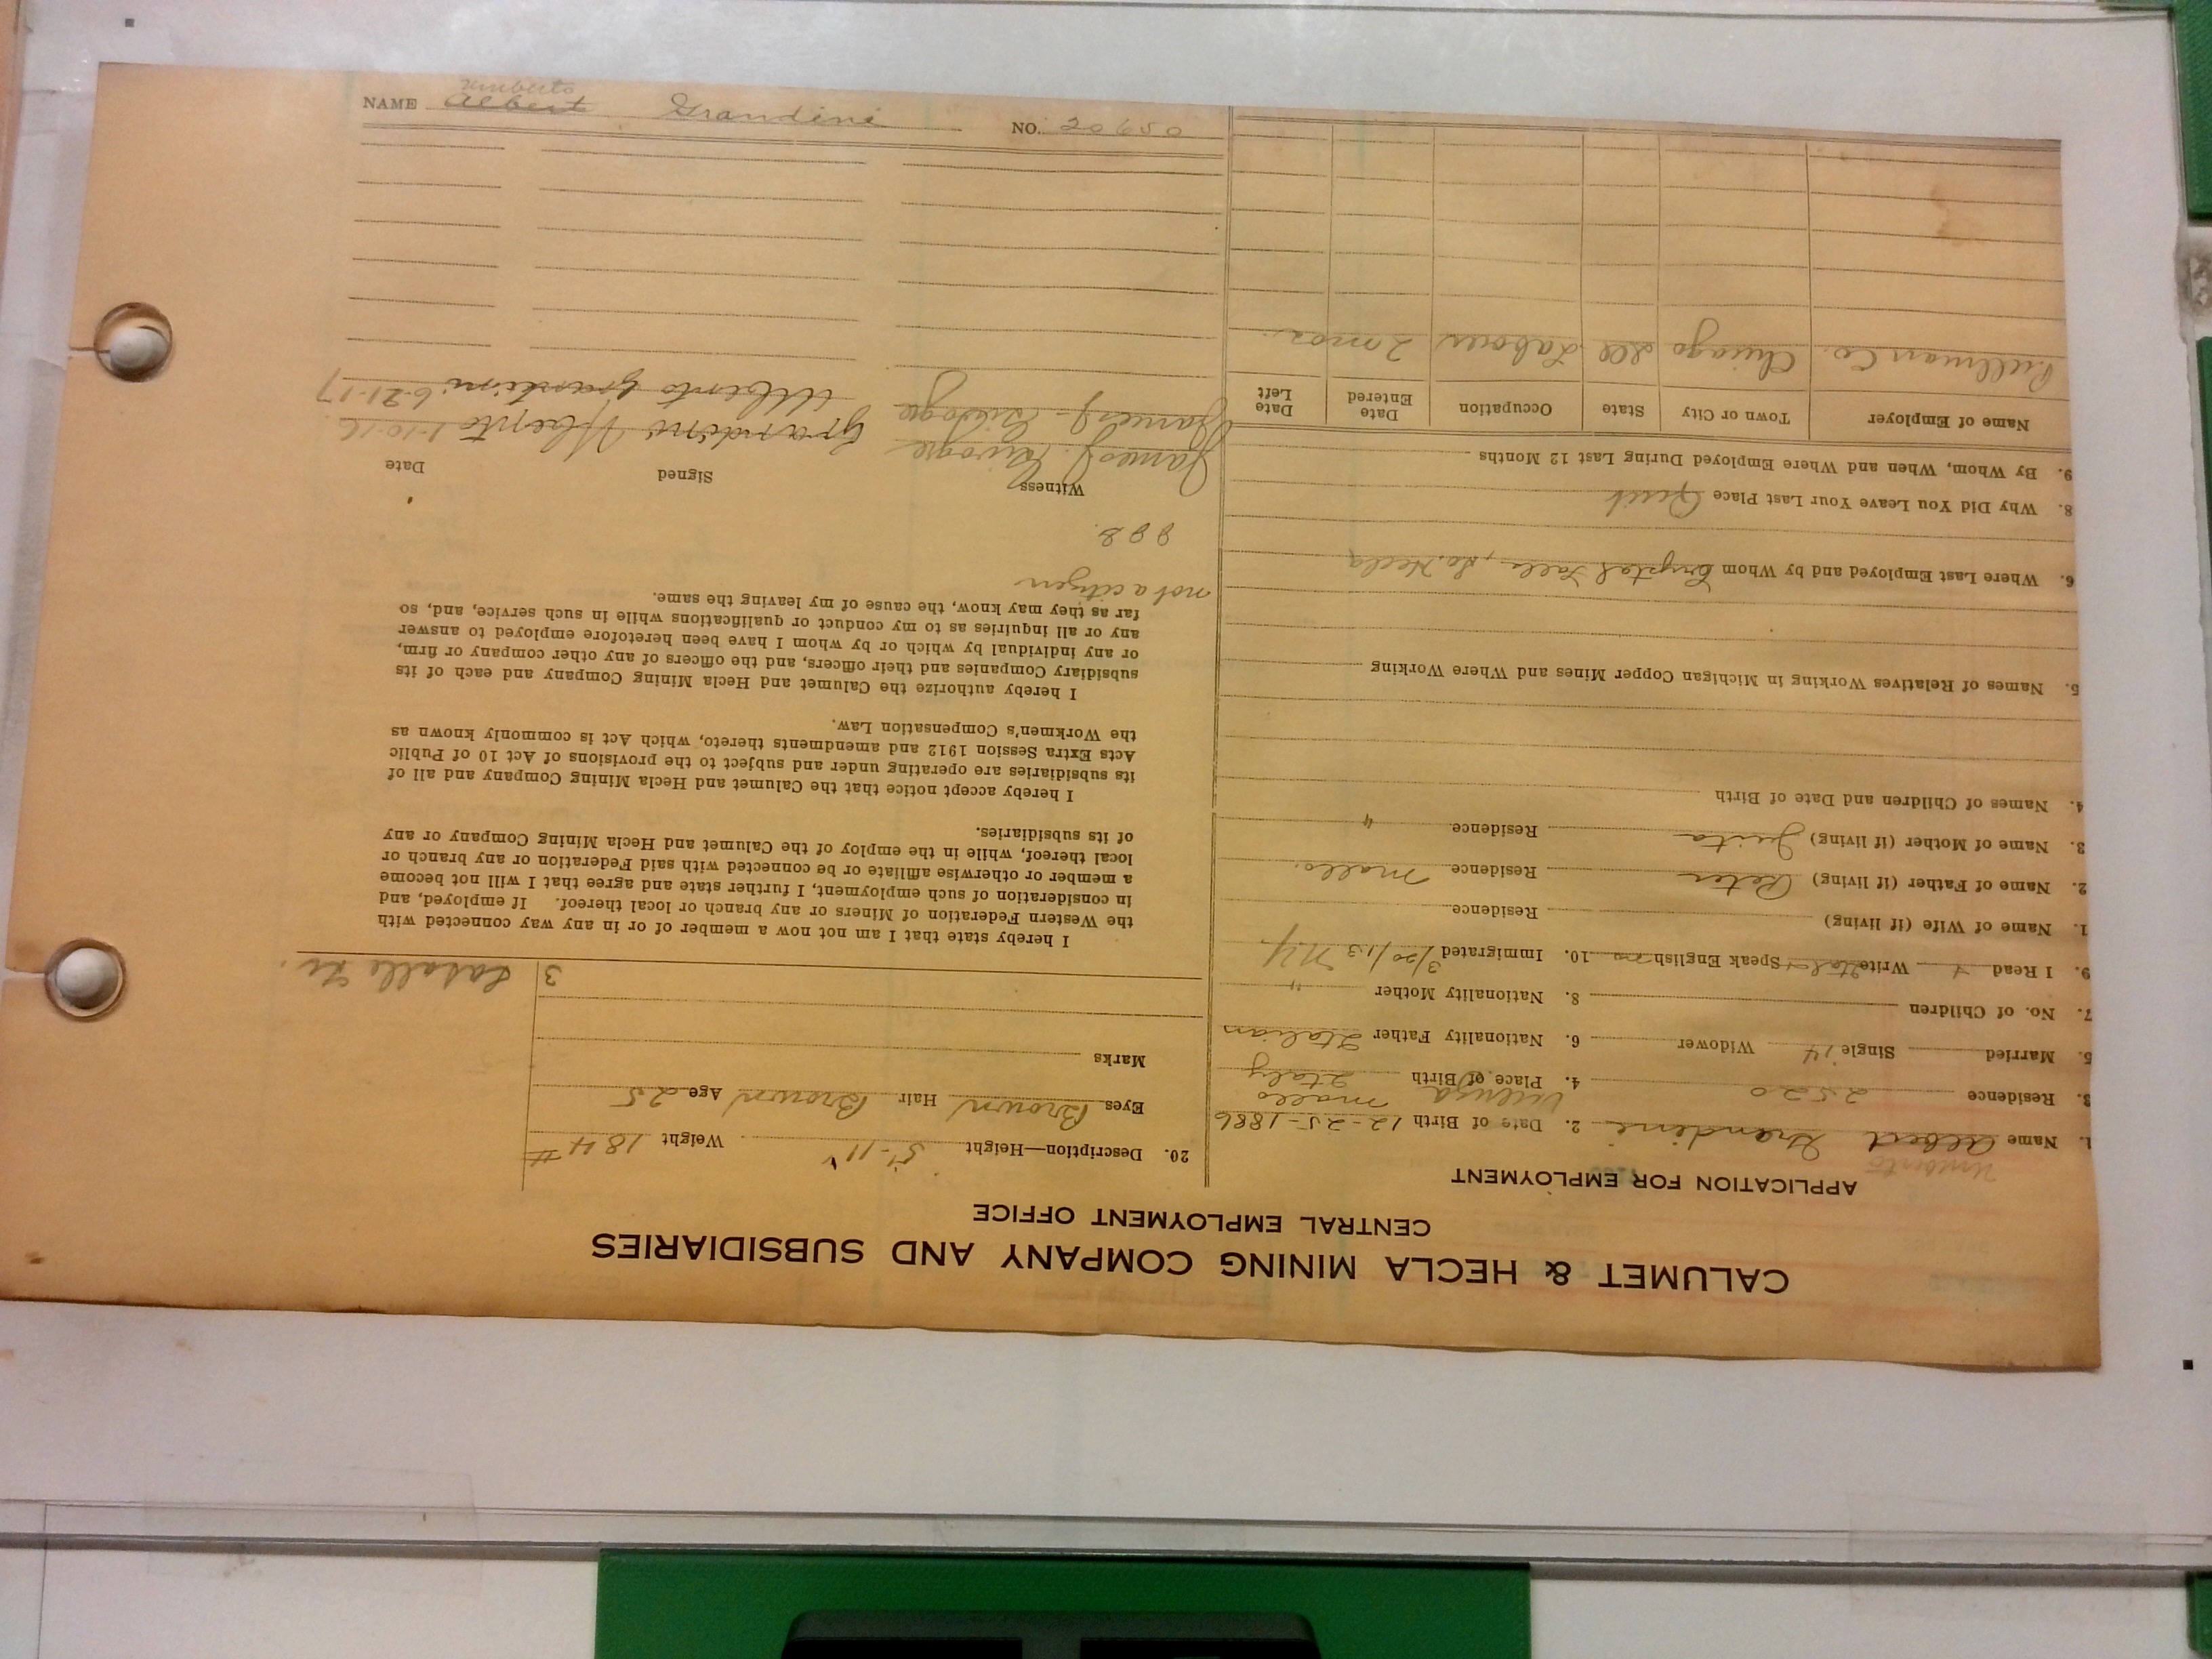 CALUMET & HECLA MINING COMPANY AND SUBSIDIARIES
CENTRAL EMPLOYMENT OFFICE
APPLICATION FOR EMPLOYMENT
Umberto
1. Name Albert Grandini 2. Date of Birth 12-25-1886
3. Residence 2520 4. Place of Birth Italy
5. Married Single 14 Widower 6. Nationality Father Italian
7. No. of Children 8. Nationality Mother "
9. I Read Write Ital Speak English no 10. Immigrated 3/20/13 N.Y.
1. Name of Wife (if living) Residence
2. Name of Father (if living) Peter Residence Mallo
3. Name of Mother (if living) Residence "
4. Names of Children and Date of Birth
5. Names of Relatives Working in Michigan Copper Mines and Where Working
6. Where Last Employed and by Whom Crystal Falls, So. Hecla
8. Why Did You Leave Your Last Place Quit
9. By Whom, When and Where Employed During Last 12 Months
Name of Employer Town or City State Occupation Date Entered Date Left
Pullman Co. Chicago Ill Labour 2 mos.
20. Description—Height 5'-11" Weight 184 #
Eyes Brown Hair Brown Age 25
Marks
3 Lasalle
I hereby state that I am not now a member of or in any way connected with
the Western Federation of Miners or any branch or local thereof. If employed, and
in consideration of such employment, I further state and agree that I will not become
a member or otherwise affiliate or be connected with said Federation or any branch or
local thereof, while in the employ of the Calumet and Hecla Mining Company or any
of its subsidiaries.
I hereby accept notice that the Calumet and Hecla Mining Company and all of
its subsidiaries are operating under and subject to the provisions of Act 10 of Public
Acts Extra Session 1912 and amendments thereto, which Act is commonly known as
the Workmen's Compensation Law.
I hereby authorize the Calumet and Hecla Mining Company and each of its
subsidiary Companies and their officers, and the officers of any other company or firm,
or any individual by which or by whom I have been heretofore employed to answer
any or all inquiries as to my conduct or qualifications while in such service, and, so
far as they may know, the cause of my leaving the same.
not a citizen
888.
Witness Signed Date
James J. Grandini 1-10-16
James J. Grandini 6-21-17
Umberto
NAME Albert Grandini NO. 20650